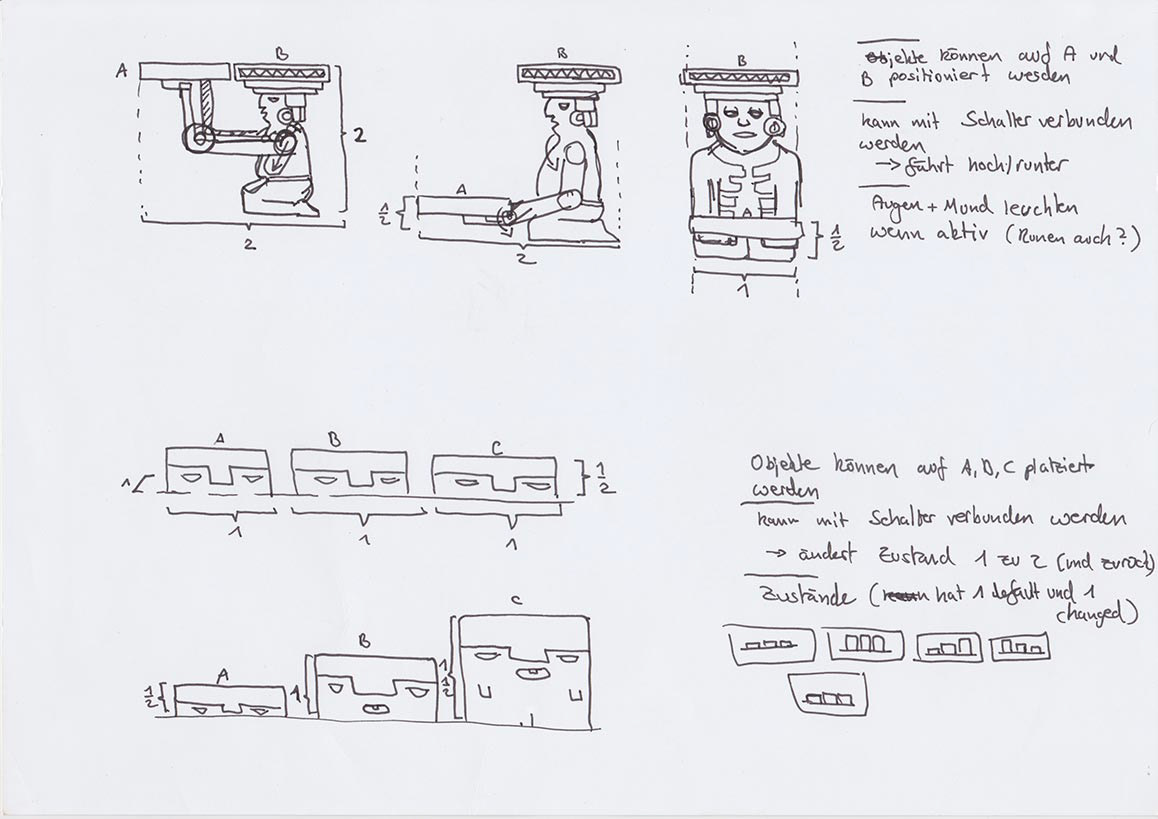 A
B
2
2
B
A
1/2
2
B
A
1/2
1
Objekte können auf A und
B positioniert werden
kann mit Schalter verbunden
werden
→ fährt hoch/runter
Augen + Mund leuchten
wenn aktiv (Runen auch?)
A
B
C
1
1/2
1
1
1
Objekte können auf A, B, C platziert
werden
kann mit Schalter verbunden werden
→ ändert Zustand 1 zu 2 (und zurück)
Zustände (hat 1 default und 1
changed)
A
B
C
1/2
1
1 1/2